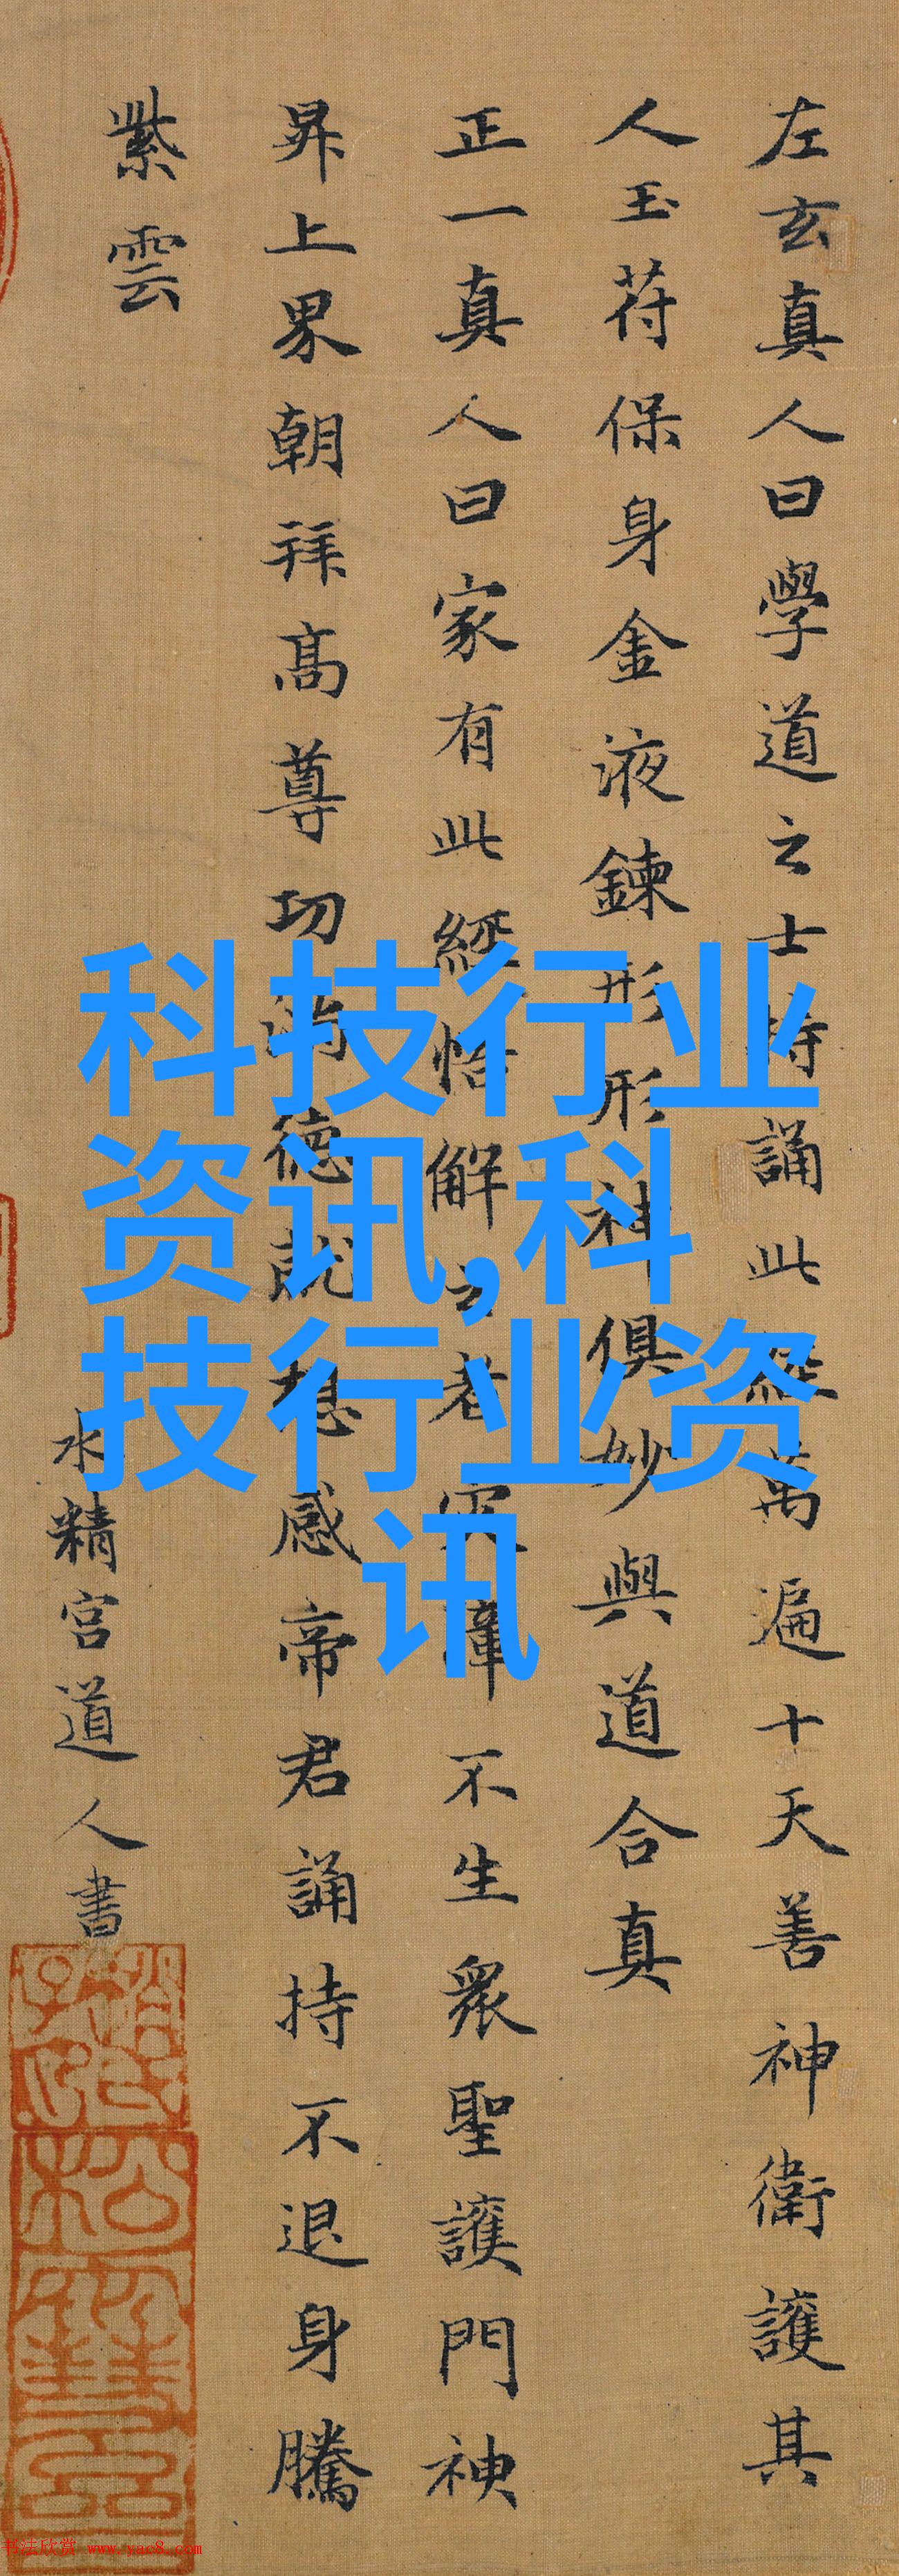 左玄真人曰學道之士持誦此經萬遍十天善神衛護其
人玉符保身金液鍊形形神俱妙與道合真
正一真人曰家有此經悟解之者灾障不生衆聖護門神
昇上界朝拜高尊功滿德就想感帝君誦持不退身騰
紫雲
水精宮道人書
科技行业
资讯,科
技行业资
讯
松雪
书法欣赏 www.yac8.com